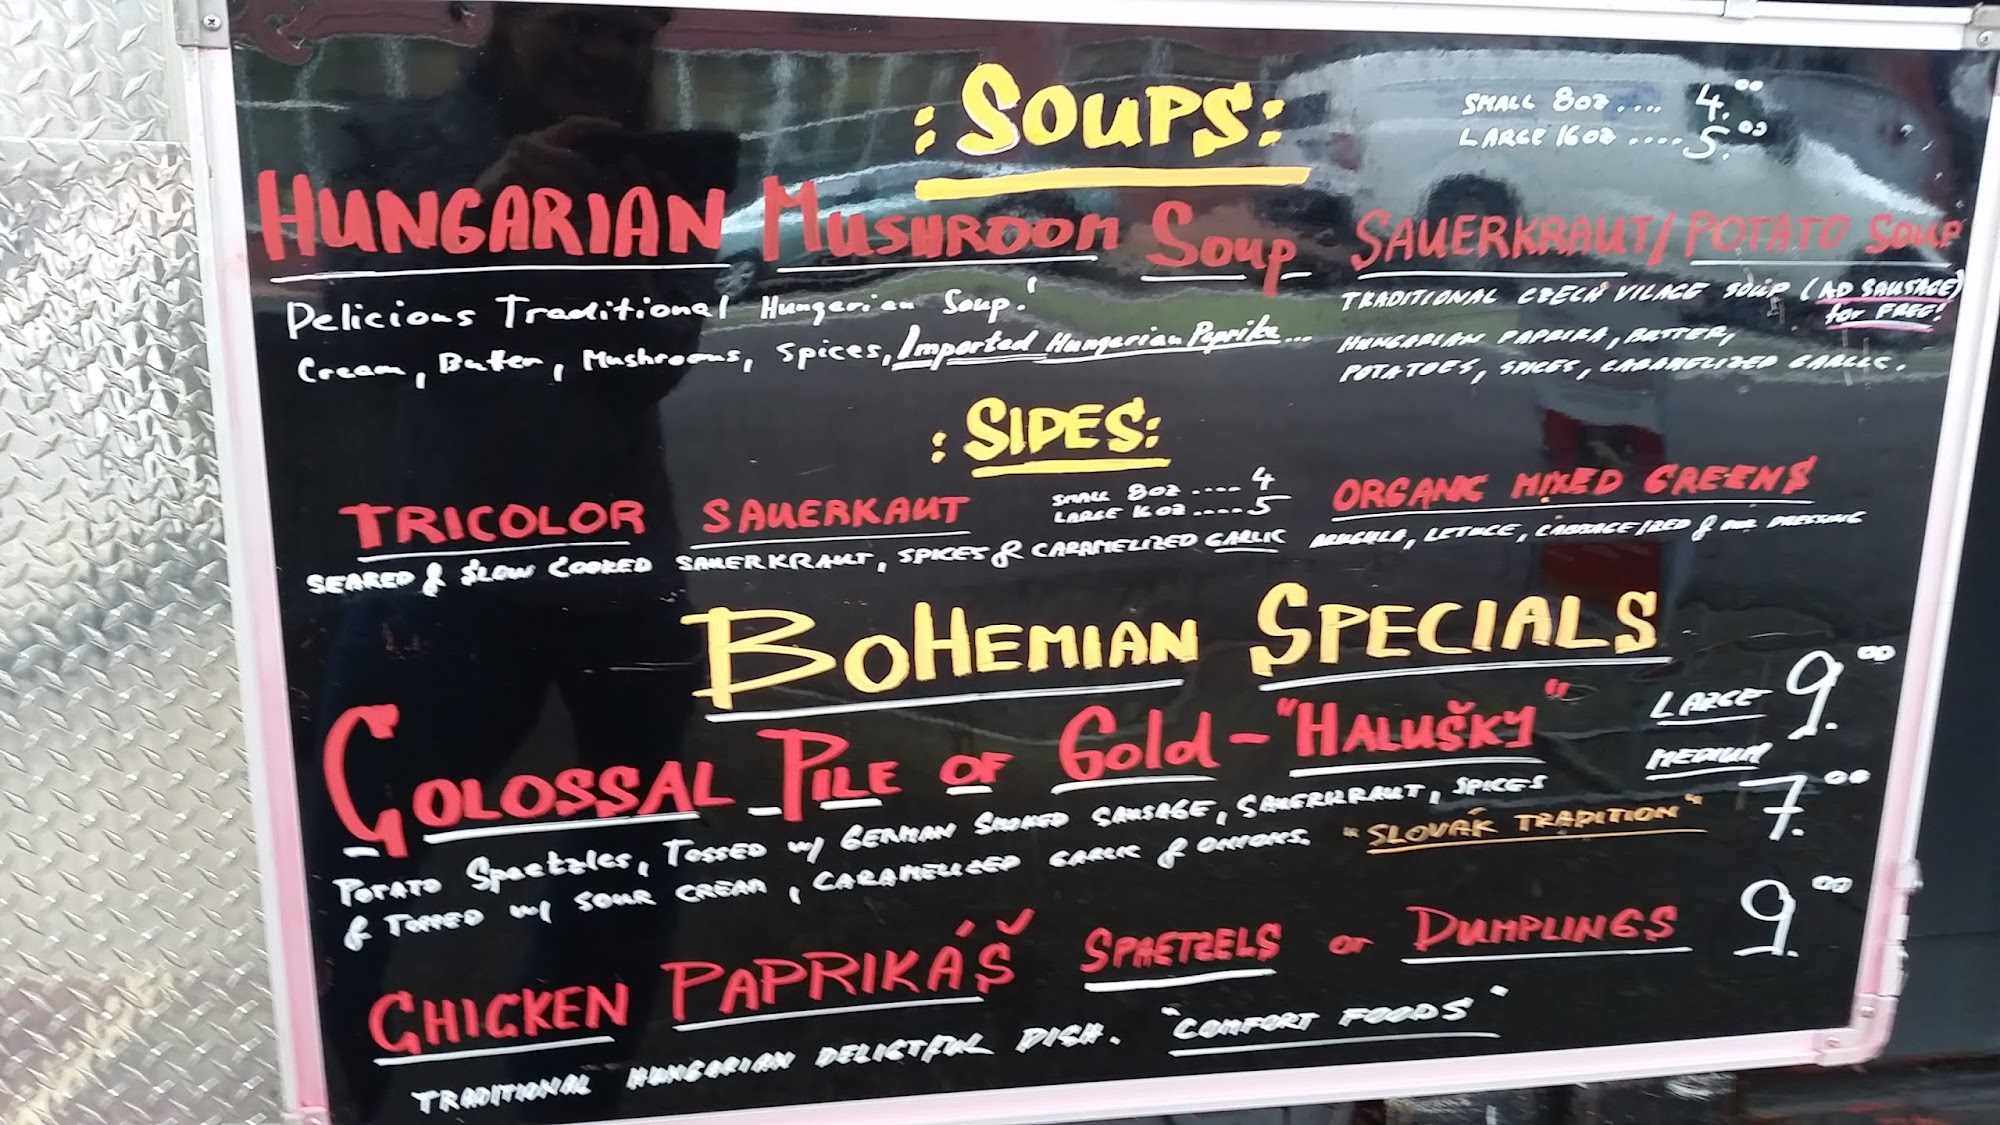 : SOUPS:
SMALL 8OZ .... 4.00
LARGE 16OZ .... 5.00
HUNGARIAN MUSHROOM SOUP
Delicious Traditional Hungarian Soup!
Cream, Butter, Mushrooms, Spices, Imported Hungarian Paprika...
SAUERKRAUT/POTATO SOUP
TRADITIONAL CZECH VILAGE SOUP (AD SAUSAGE)
for FREE!
HUNGARIAN PAPRIKA, BUTTER,
POTATOES, SPICES, CARAMELIZED GARLIC.
: SIDES:
TRICOLOR SAUERKAUT
SMALL 8OZ .... 4
LARGE 16OZ .... 5
SEARED & SLOW COOKED SAUERKRAUT, SPICES & CARAMELIZED GARLIC
ORGANIC MIXED GREENS
LETUCE, CABBAGE & OUR DRESSING
BOHEMIAN SPECIALS
COLOSSAL PILE OF GOLD - "HALUŠKY"
LARGE 9.00
MEDIUM 7.00
POTATO Spaetzles, TOSSED W/ GERMAN SMOKED SAUSAGE, SAUERKRAUT, SPICES
& TOPPED W/ SOUR CREAM, CARAMELIZED GARLIC & ONIONS.
"SLOVÁK TRADITION"
CHICKEN PAPRIKÁŠ SPAETZELS or DUMPLINGS 9.00
TRADITIONAL HUNGARIAN DELICTFUL DISH. "COMFORT FOODS"